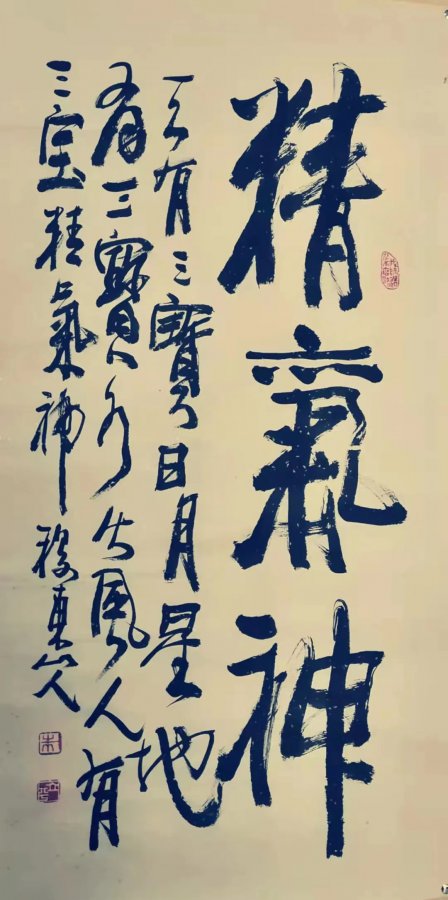 精氣神
天有三寶日月星地
有三寶水火風人有
三宝精氣神 東山人
朱